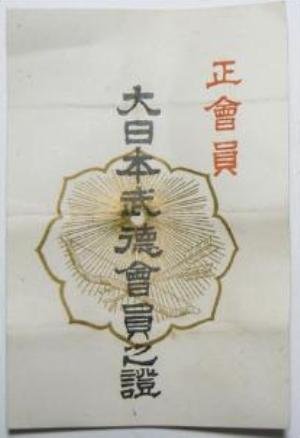 正會員
大日本武德會員之證